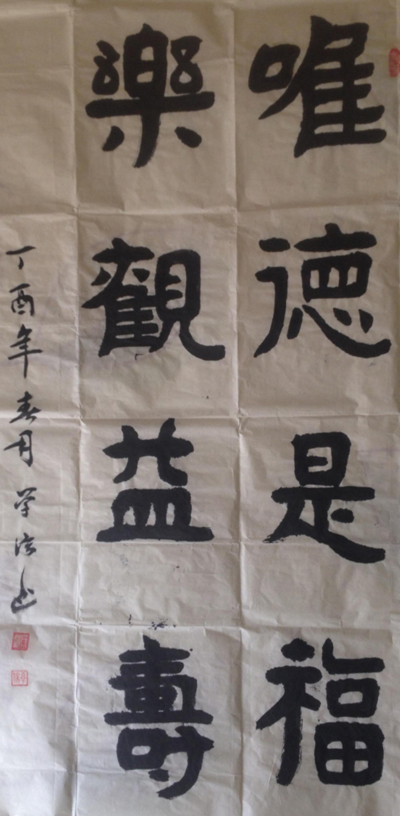 唯德是福
樂觀益壽
丁酉年春月